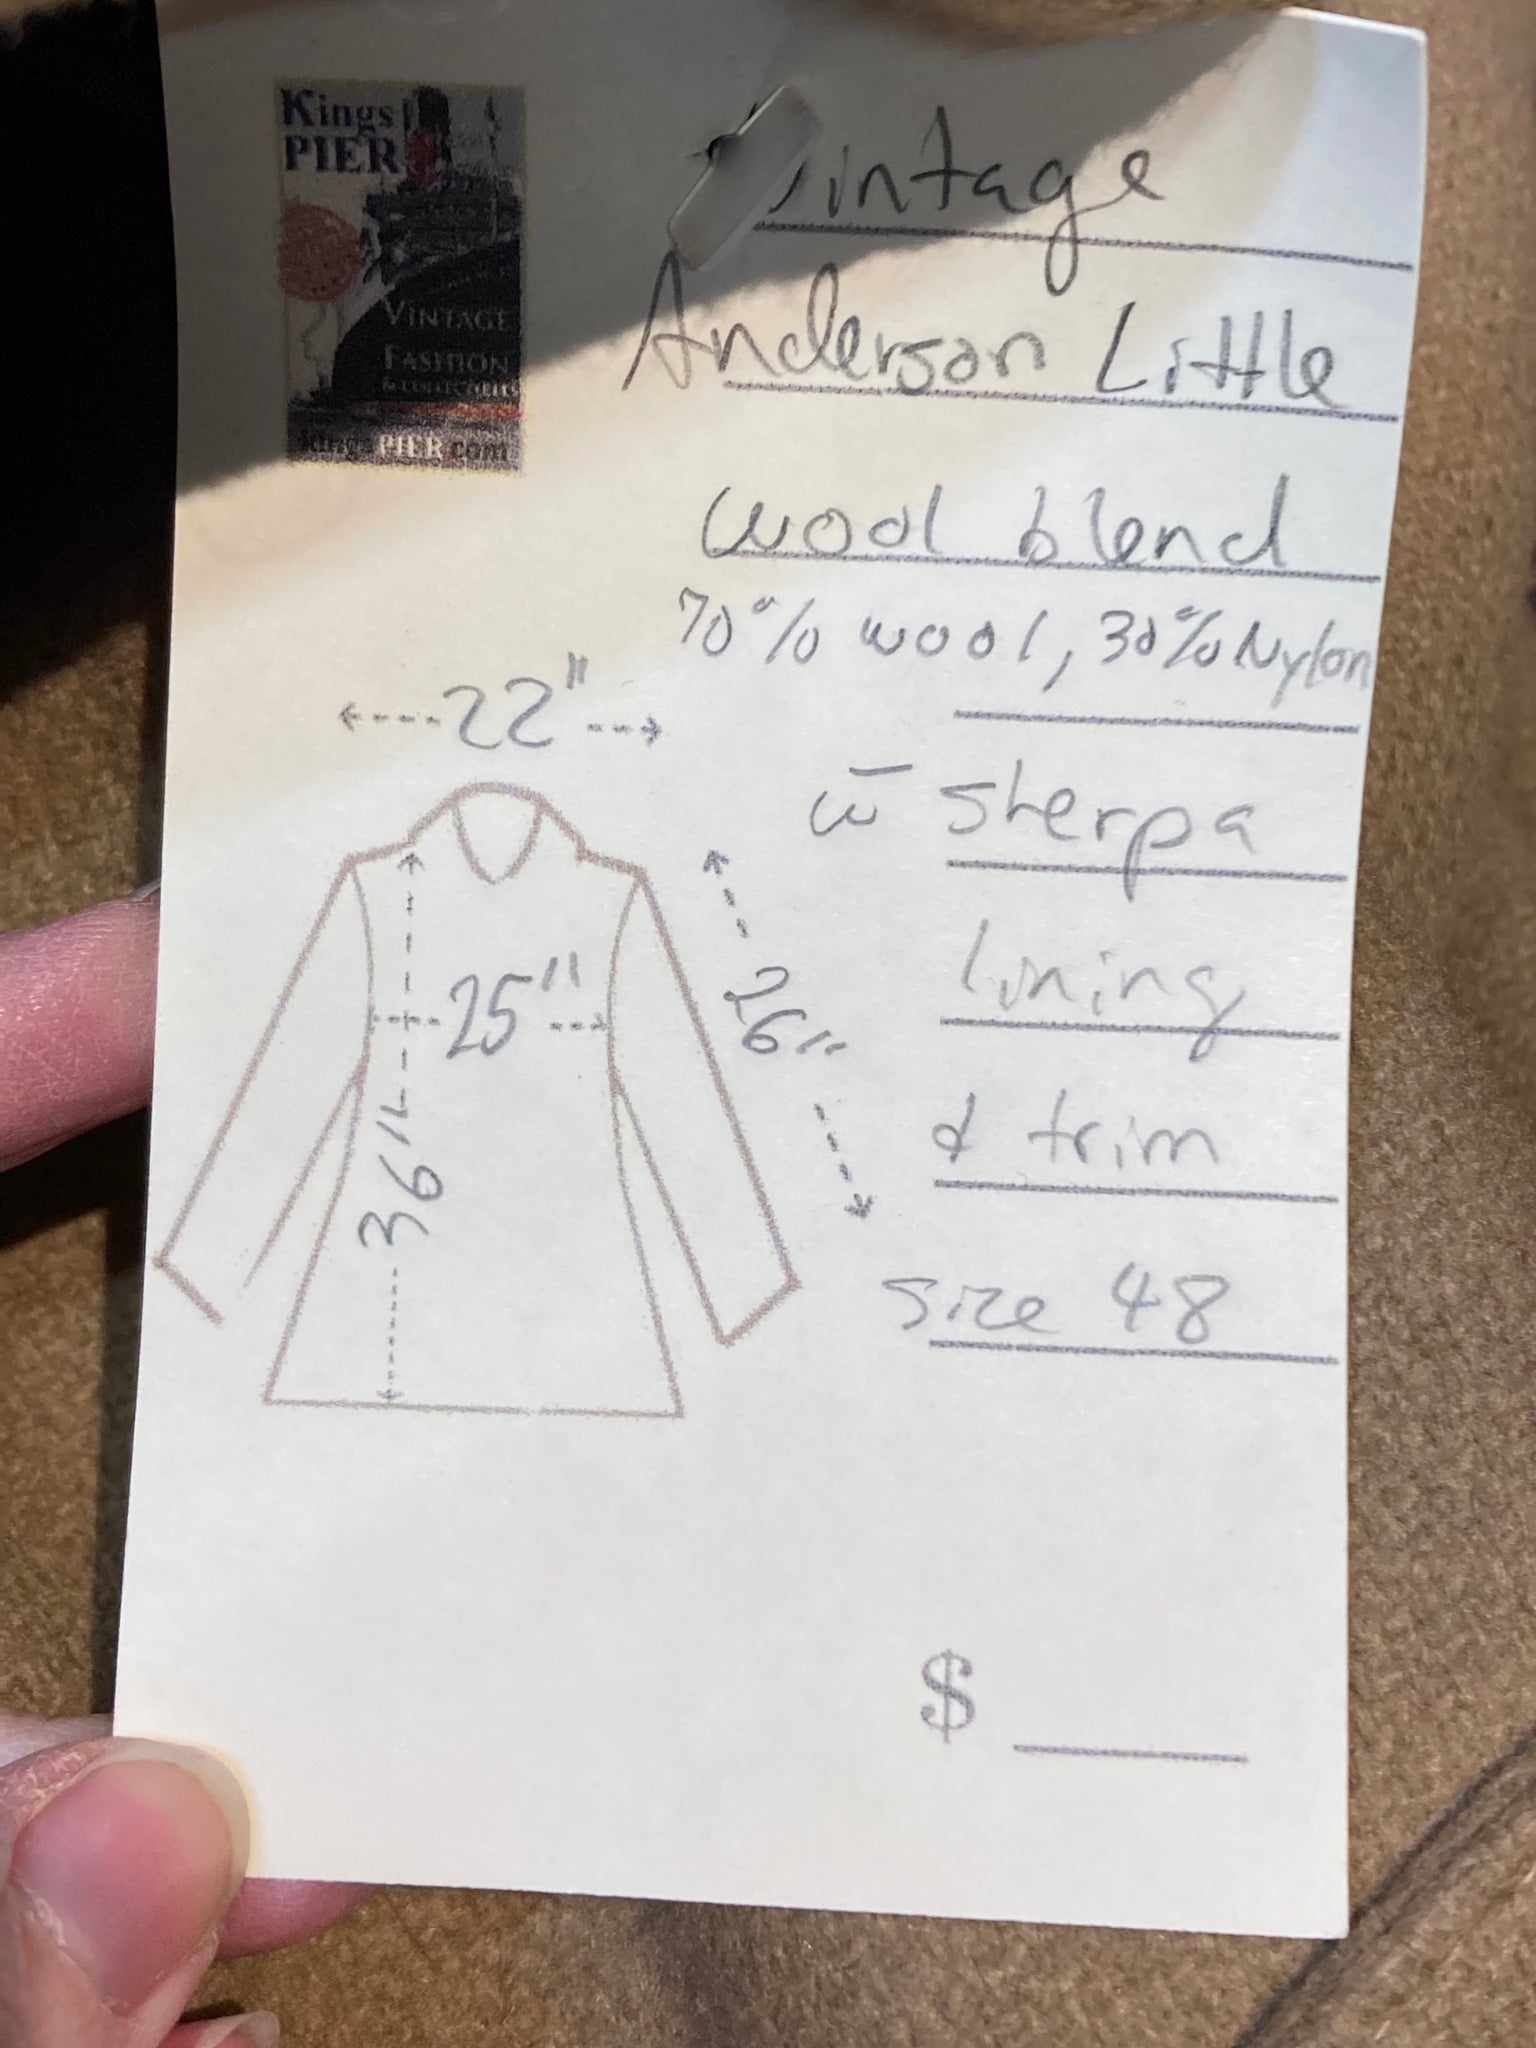 Kings
PIER
VINTAGE
FASHION
& COLLECTIBLES
kingsPIER.com
Vintage
Anderson Little
wool blend
70% wool, 30% Nylon
w̄ sherpa
lining
& trim
size 48
22"
25"
26"
36"
$